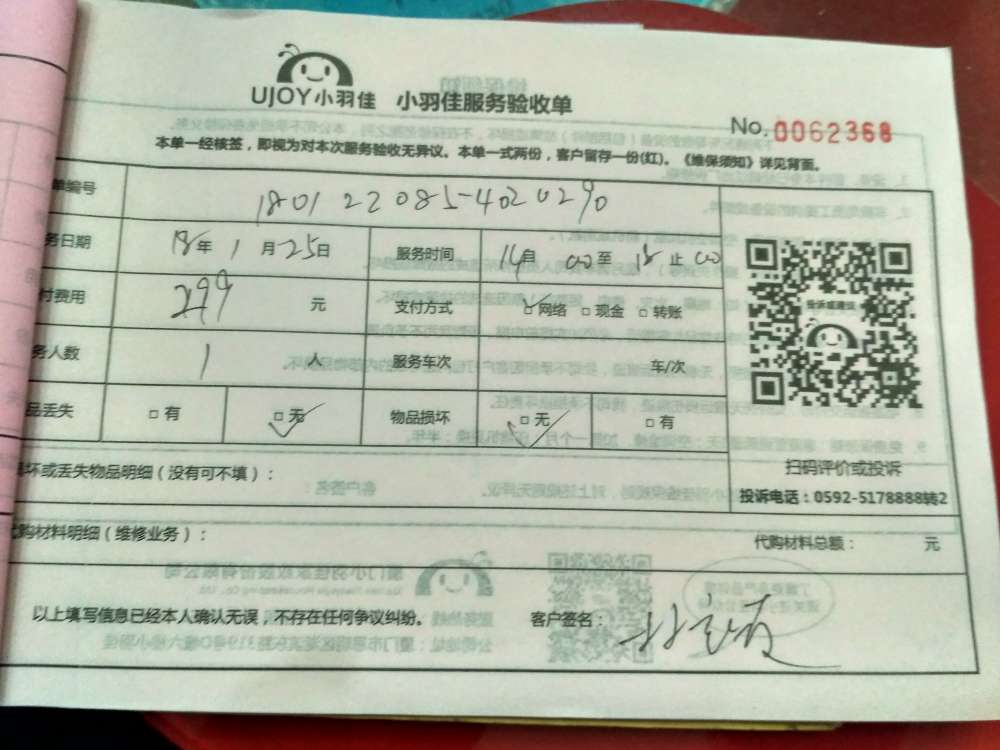 UJOY小羽佳 小羽佳服务验收单
No.0062368
本单一经核签，即视为对本次服务验收无异议。本单一式两份，客户留存一份(红)。《维保须知》详见背面。
单编号 1801220854020290
务日期 18年1月25日 服务时间 14自00至18止00
付费用 299 元 支付方式 网络 现金 转账
投诉或建议
务人数 1 人 服务车次 车/次
品丢失 有 无 物品损坏 无 有
扫码评价或投诉
坏或丢失物品明细（没有可不填）：
投诉电话：0592-5178888转2
代购材料明细（维修业务）： 代购材料总额： 元
以上填写信息已经本人确认无误，不存在任何争议纠纷。 客户签名：